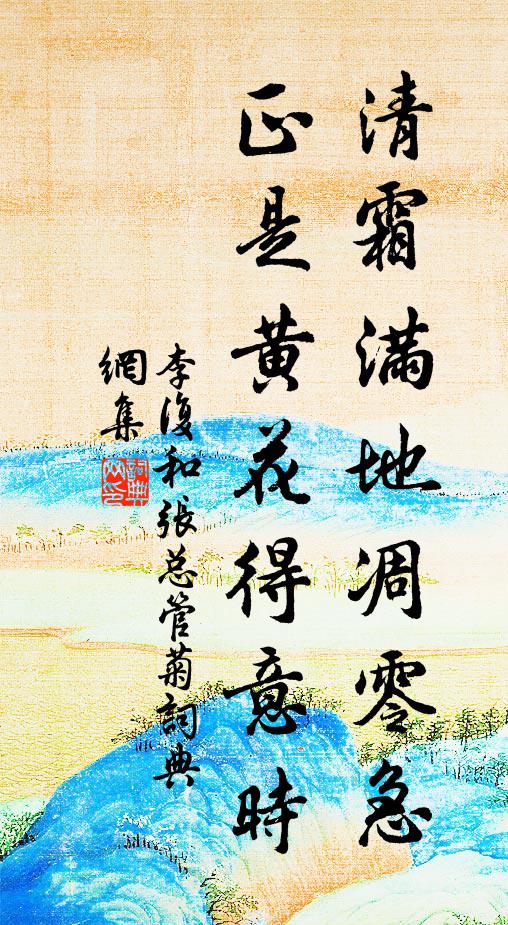 清霜滿地凋零急
正是黃花得意時
李復和張总管菊詞典
網集
詞典